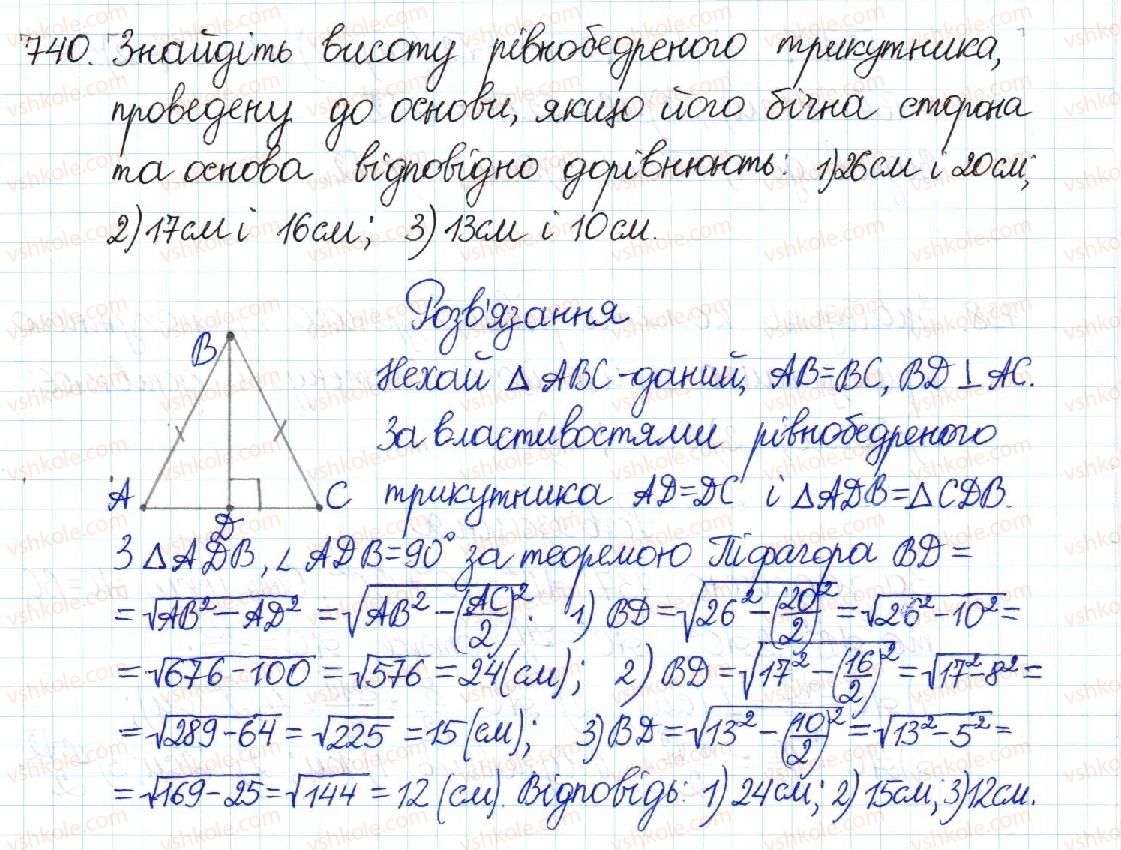 740. Знайдіть висоту рівнобедреного трикутника,
проведену до основи, якщо його бічна сторона
та основа відповідно дорівнюють: 1) 26 см і 20 см;
2) 17 см і 16 см; 3) 13 см і 10 см.
Розв'язання
B
Нехай △ABC - даний, AB=BC, BD⊥AC.
За властивостями рівнобедреного
A D C
трикутника AD=DC і △ADB=△CDB.
З △ADB, ∠ADB=90° за теоремою Піфагора BD=
=√(AB²-AD²) = √(AB²-(AC/2)²). 1) BD=√(26²-(20/2)²) =√(26²-10²)=
=√(676-100)=√576=24(см); 2) BD=√(17²-(16/2)²)=√(17²-8²)=
=√(289-64)=√225=15(см); 3) BD=√(13²-(10/2)²)=√(13²-5²)=
=√(169-25)=√144=12(см). Відповідь: 1) 24 см; 2) 15 см; 3) 12 см.
vshkole.com